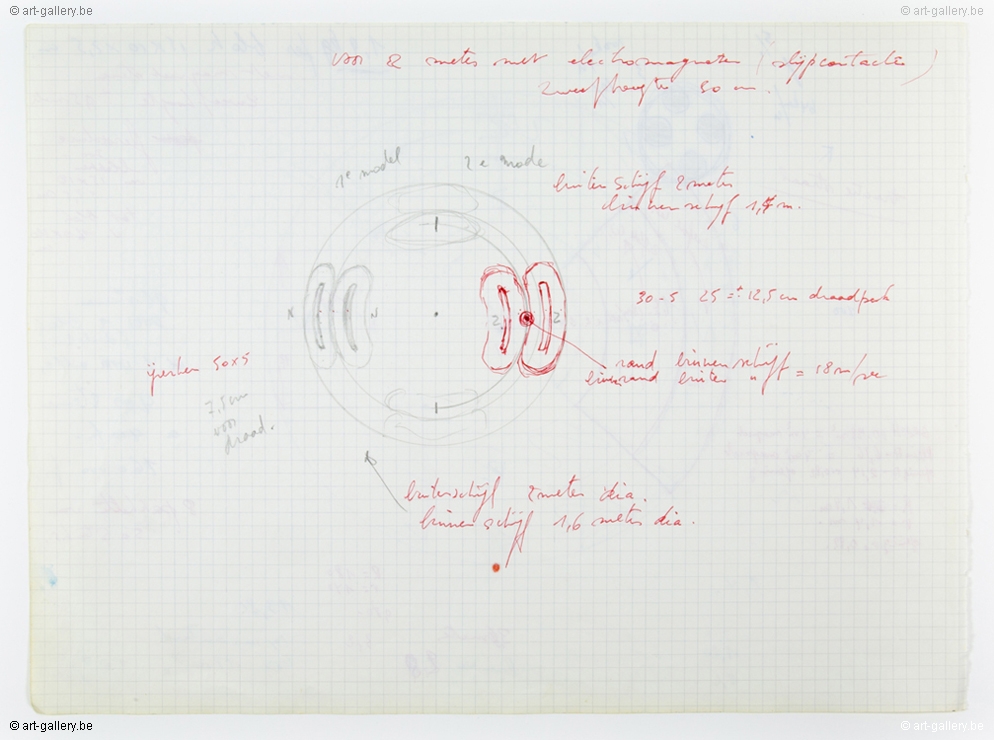 © art-gallery.be
© art-gallery.be
voor 2 meter met electromagneten (slijpcontacten)
zweefhoogte 50 cm.
1e model
2e mode
buiten schijf 2 meter
binnenschijf 1,4 m.
N
N
Z
Z
30-5 25 = ± 12,5 cm draadpak
ijzerkern 50x5
rand binnenschijf
binnenrand buiten " = 18 m/sec
7,5 cm
voor
draad.
buitenschijf 2 meter dia.
binnenschijf 1,6 meter dia.
© art-gallery.be
© art-gallery.be